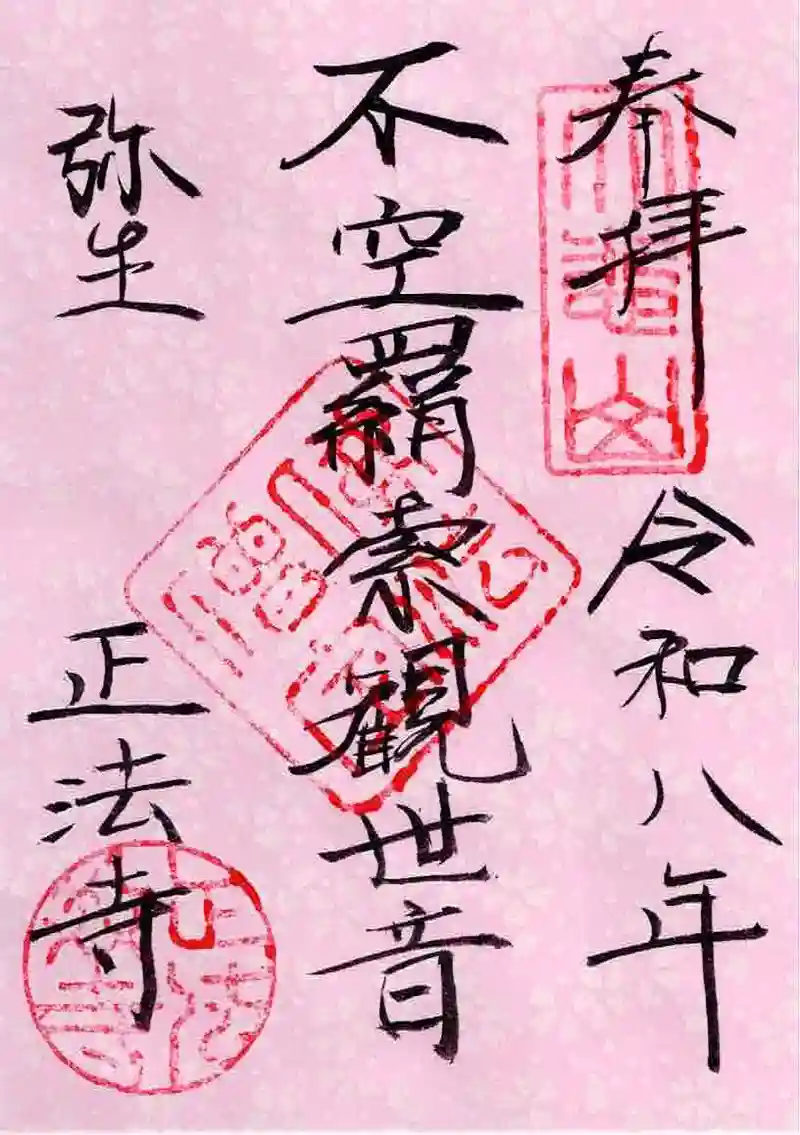 奉拝
令和八年
不空羂索観世音
弥生
正法寺